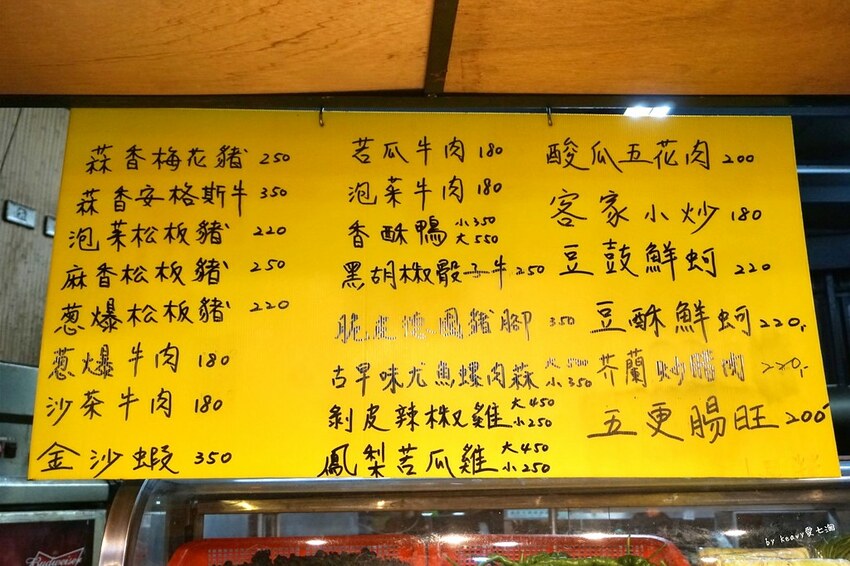 蒜香梅花豬 250
蒜香安格斯牛 350
泡菜松板豬 220
麻香松板豬 250
蔥爆松板豬 220
蔥爆牛肉 180
沙茶牛肉 180
金沙蝦 350
苦瓜牛肉 180
泡菜牛肉 180
香酥鴨 小350 大550
黑胡椒骰子牛 250
脆皮德國豬腳 350
古早味尤魚螺肉蒜 大500 小350
剝皮辣椒雞 大450 小250
鳳梨苦瓜雞 大450 小250
酸瓜五花肉 200
客家小炒 180
豆鼓鮮蚵 220
豆酥鮮蚵 220.
芥蘭炒臘肉 220.
五更腸旺 200
Budweiser
by keavy愛七淘